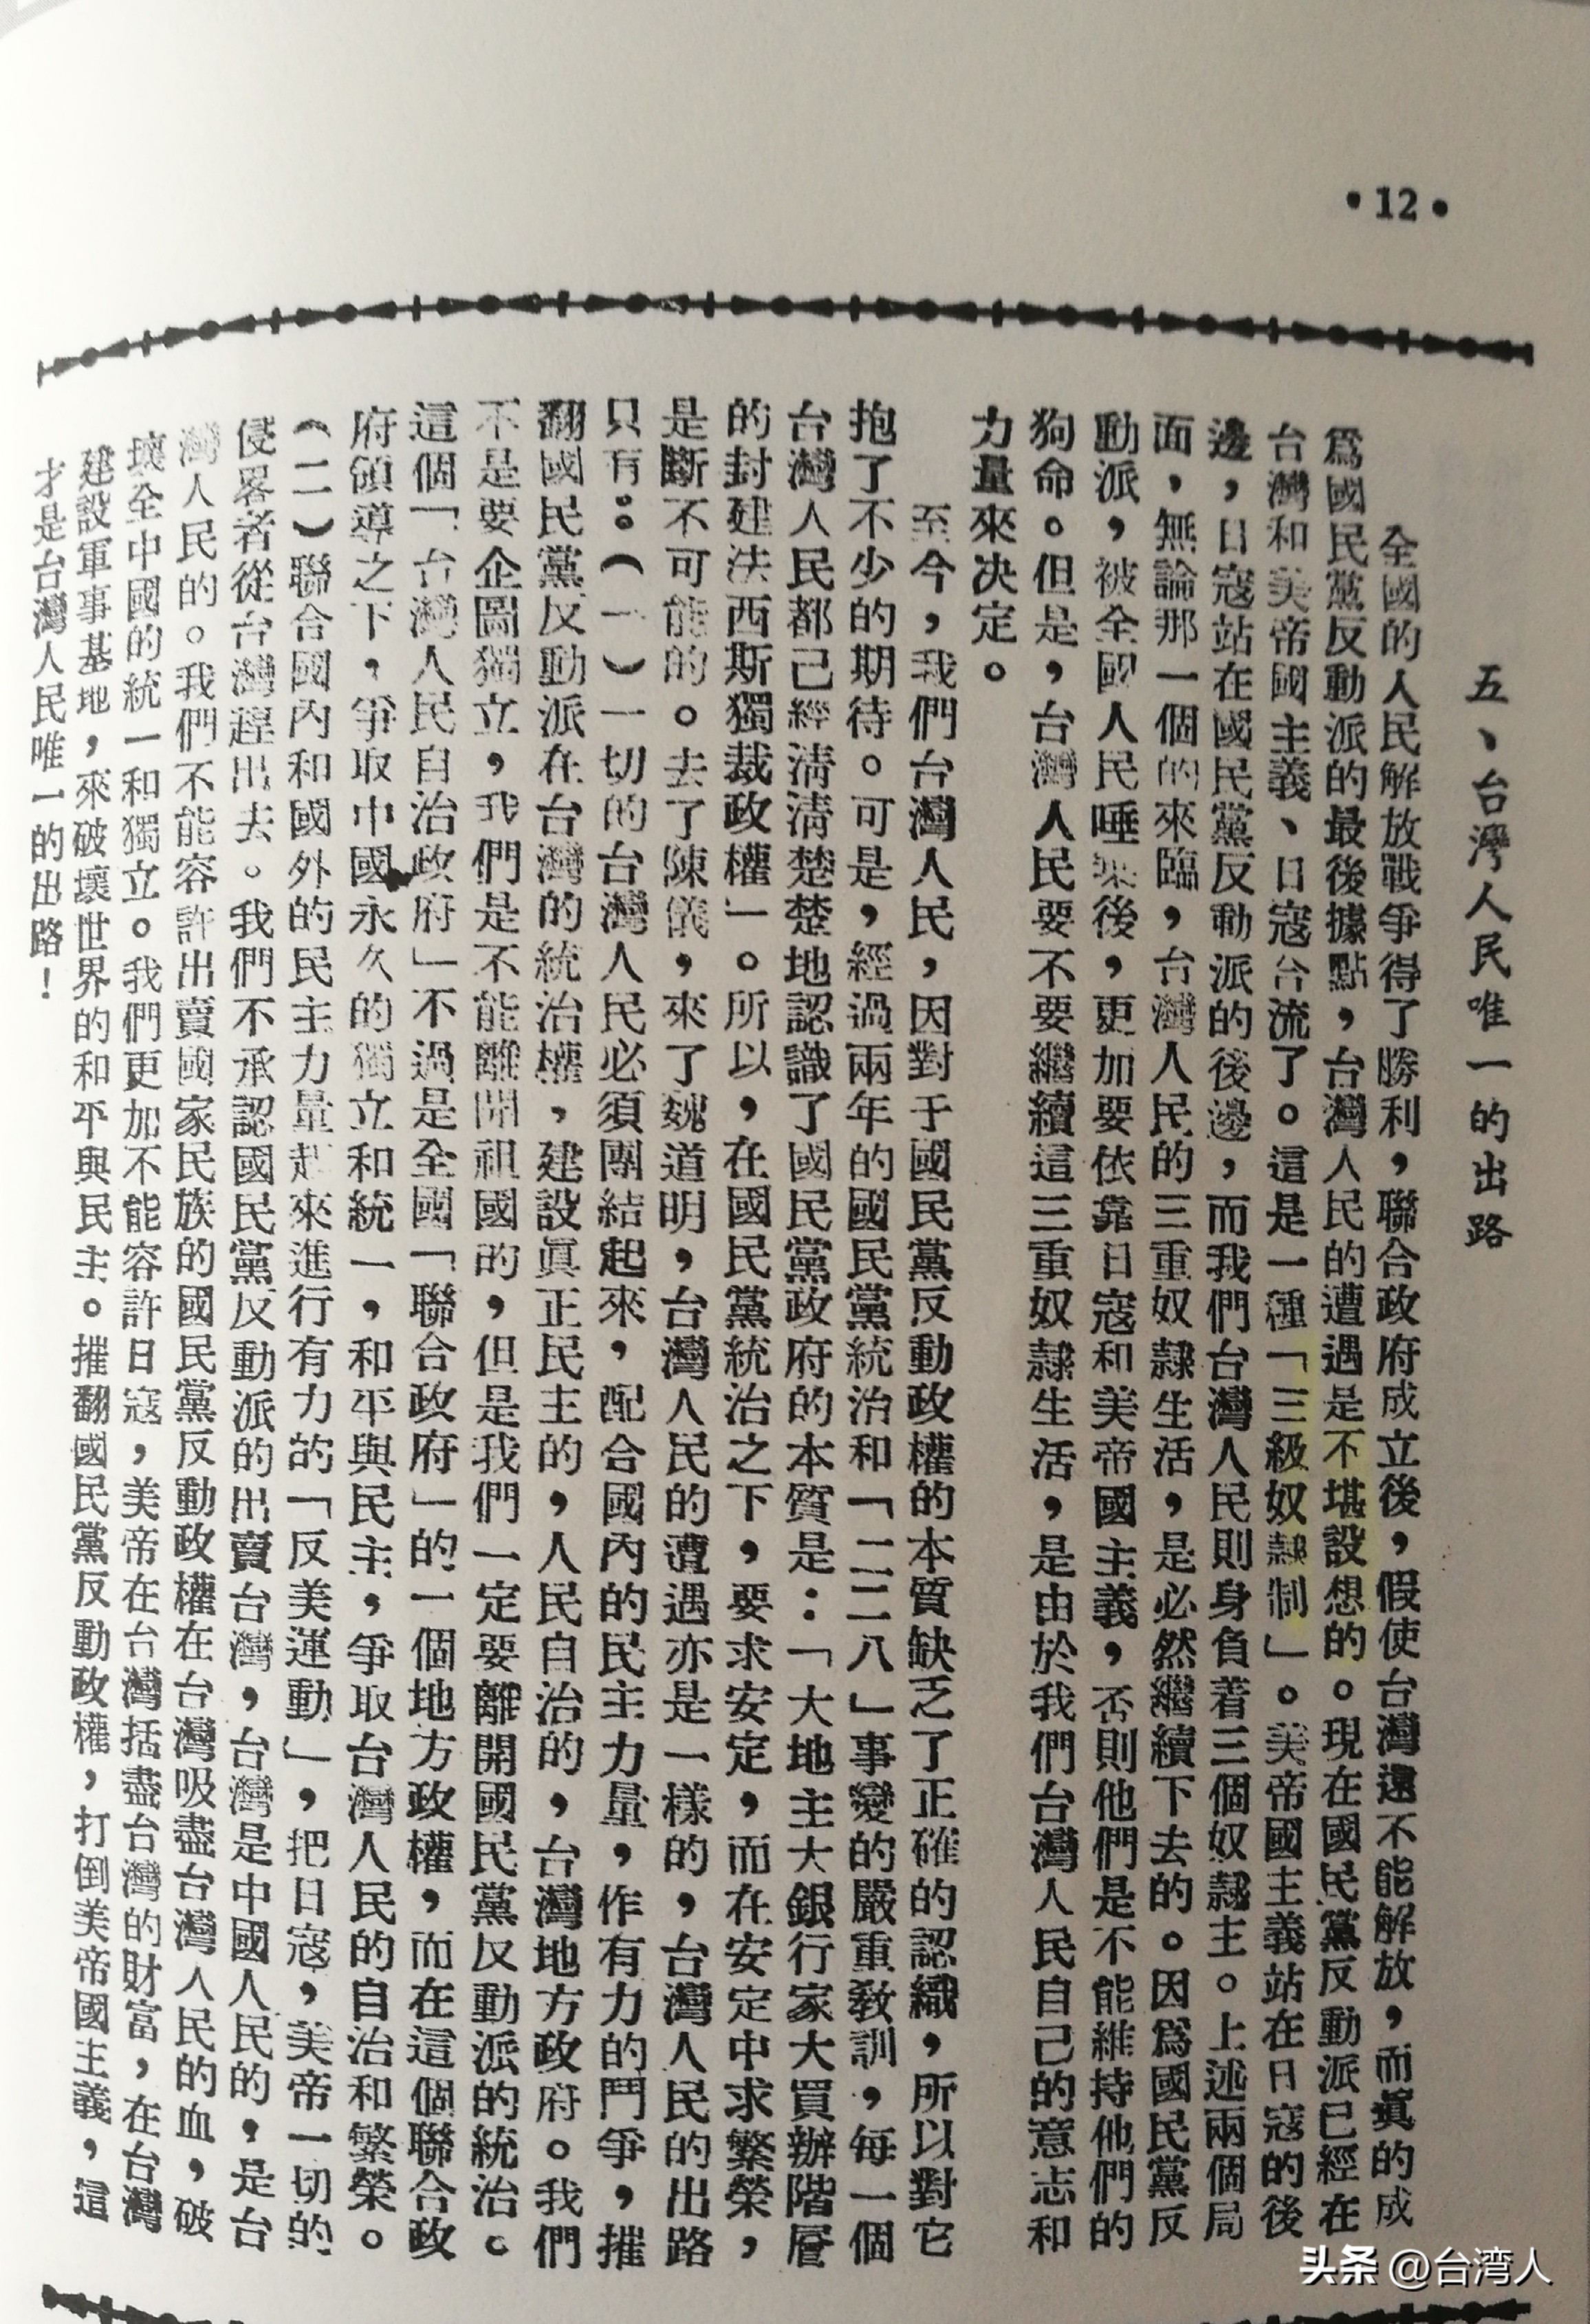 •12•
五、台灣人民唯一的出路
全國的人民解放戰爭得了勝利，聯合政府成立後，假使台灣還不能解放，而眞的成
爲國民黨反動派的最後據點，台灣人民的遭遇是不堪設想的。現在國民黨反動派已經在
台灣和美帝國主義、日寇合流了。這是一種「三級奴隸制」。美帝國主義站在日寇的後
邊，日寇站在國民黨反動派的後邊，而我們台灣人民則身負着三個奴隸主。上述兩個局
面，無論那一個的來臨，台灣人民的三重奴隸生活，是必然繼續下去的。因爲國民黨反
動派，被全國人民唾棄後，更加要依靠日寇和美帝國主義，否則他們是不能維持他們的
狗命。但是，台灣人民要不要繼續這三重奴隸生活，是由於我們台灣人民自己的意志和
力量來决定。
至今，我們台灣人民，因對于國民黨反動政權的本質缺乏了正確的認織，所以對它
抱了不少的期待。可是，經過兩年的國民黨統治和「二二八」事變的嚴重敎訓，每一個
台灣人民都已經清清楚楚地認識了國民黨政府的本質是：「大地主大銀行家大買辦階層
的封建法西斯獨裁政權」。所以，在國民黨統治之下，要求安定，而在安定中求繁榮，
是斷不可能的。去了陳儀，來了魏道明，台灣人民的遭遇亦是一樣的，台灣人民的出路
只有：（一）一切的台灣人民必須團結起來，配合國內的民主力量，作有力的鬥爭，摧
翻國民黨反動派在台灣的統治權，建設眞正民主的，人民自治的，台灣地方政府。我們
不是要企圖獨立，我們是不能離開祖國的，但是我們一定要離開國民黨反動派的統治。
這個「台灣人民自治政府」不過是全國「聯合政府」的一個地方政權，而在這個聯合政
府領導之下，爭取中國永久的獨立和統一，和平與民主，爭取台灣人民的自治和繁榮。
（二）聯合國內和國外的民主力量起來進行有力的「反美運動」，把日寇，美帝一切的
侵畧者從台灣趕出去。我們不承認國民黨反動派的出賣台灣，台灣是中國人民的，是台
灣人民的。我們不能容許出賣國家民族的國民黨反動政權在台灣吸盡台灣人民的血，破
壞全中國的統一和獨立。我們更加不能容許日寇，美帝在台灣括盡台灣的財富，在台灣
建設軍事基地，來破壞世界的和平與民主。摧翻國民黨反動政權，打倒美帝國主義，這
才是台灣人民唯一的出路！
头条 @台湾人